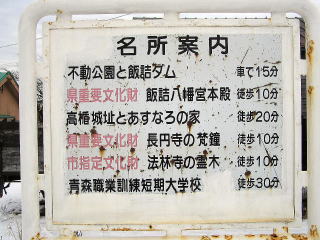 名所案内
不動公園と飯詰ダム 車で15分
県重要文化財 飯詰八幡宮本殿 徒歩10分
高楯城址とあすなろの家 徒歩20分
県重要文化財 長円寺の梵鐘 徒歩10分
市指定文化財 法林寺の霊木 徒歩10分
青森職業訓練短期大学校 徒歩30分